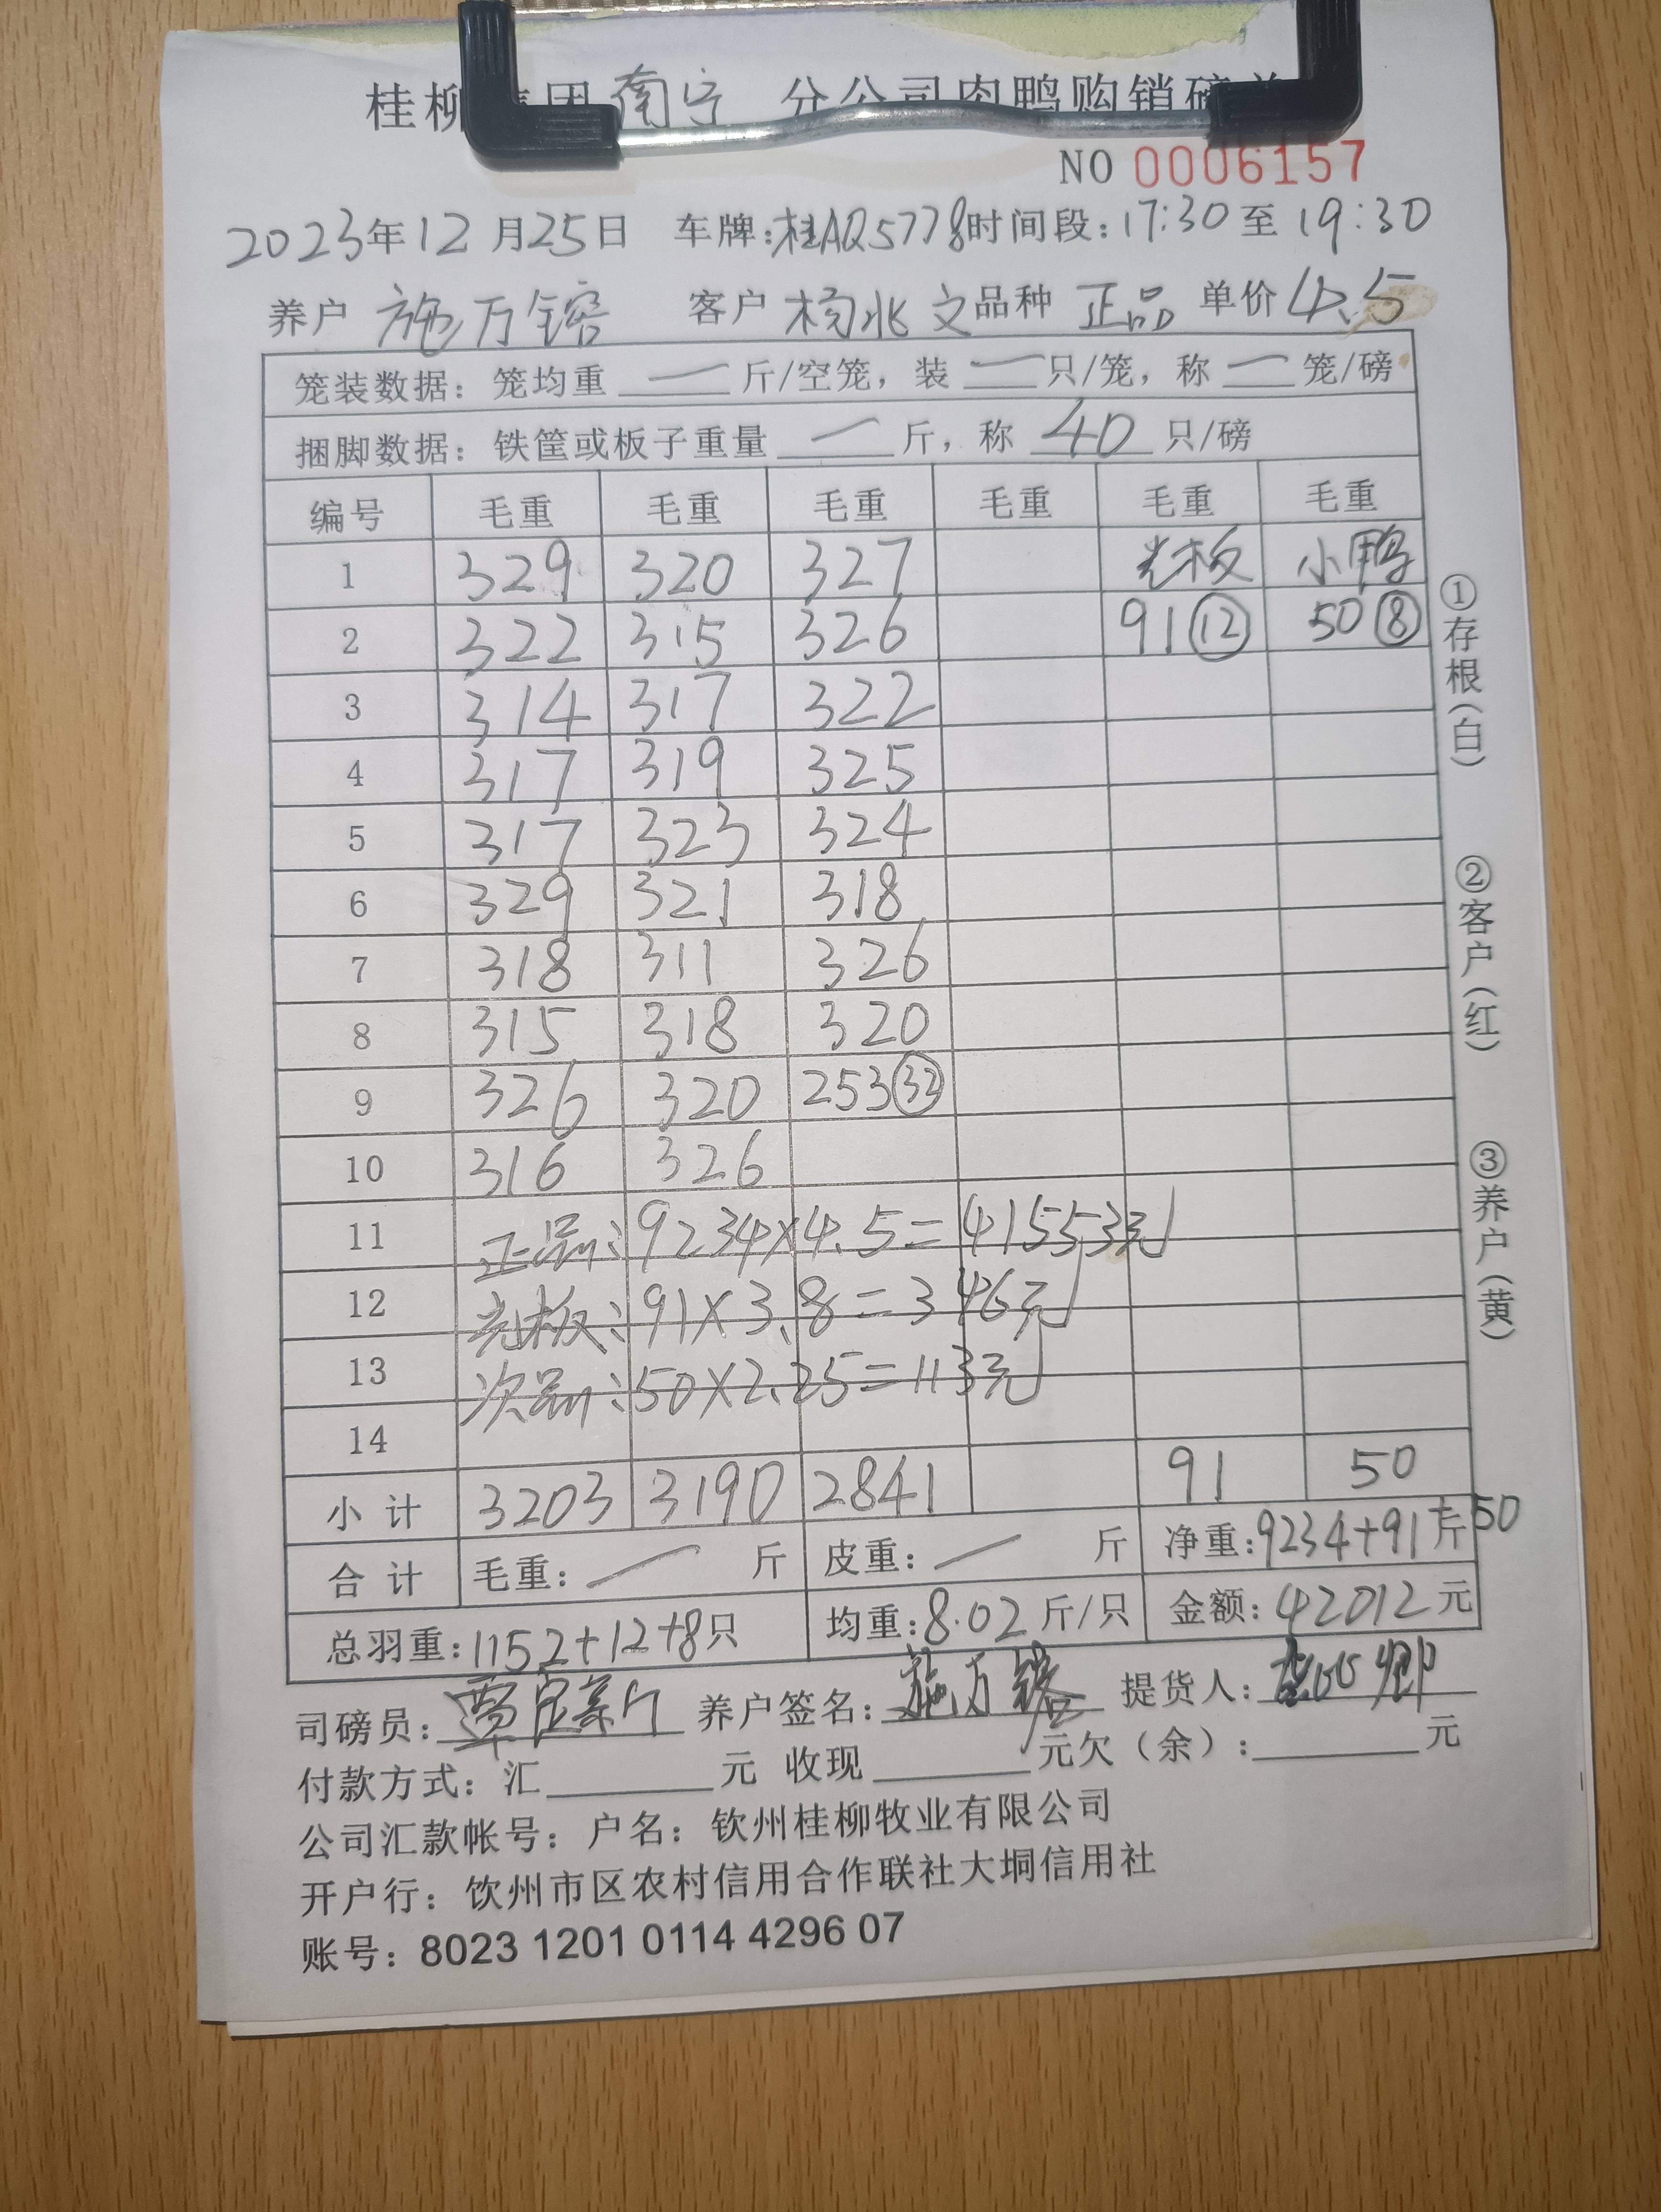 桂柳集团南宁 分公司肉鸭购销磅单
NO 0006157
2023年12月25日 车牌:桂AQ5778时间段:17:30至19:30
养户 施万镕 客户 杨兆文品种 正品 单价4.5
笼装数据:笼均重 — 斤/空笼,装 — 只/笼,称 — 笼/磅
捆脚数据:铁筐或板子重量 — 斤,称 40 只/磅
编号 毛重 毛重 毛重 毛重 毛重 毛重
1 329 320 327 光板 小鸭
2 322 315 326 91⑫ 50⑧
3 314 317 322
4 317 319 325
5 317 323 324
6 329 321 318
7 318 311 326
8 315 318 320
9 326 320 253㉜
10 316 326
11 正品:9234×4.5=41553元
12 光板:91×3.8=346元
13 次品:50×2.25=113元
14
小计 3203 3190 2841 91 50
合计 毛重:— 斤 皮重:— 斤 净重:9234+91斤+50
总羽重:1152+12+8只 均重:8.02斤/只 金额:42012元
司磅员: 养户签名:施万镕 提货人:
付款方式:汇 元 收现 元欠(余): 元
公司汇款帐号:户名:钦州桂柳牧业有限公司
开户行:钦州市区农村信用合作联社大垌信用社
账号:8023 1201 0114 4296 07
①存根(白)
②客户(红)
③养户(黄)